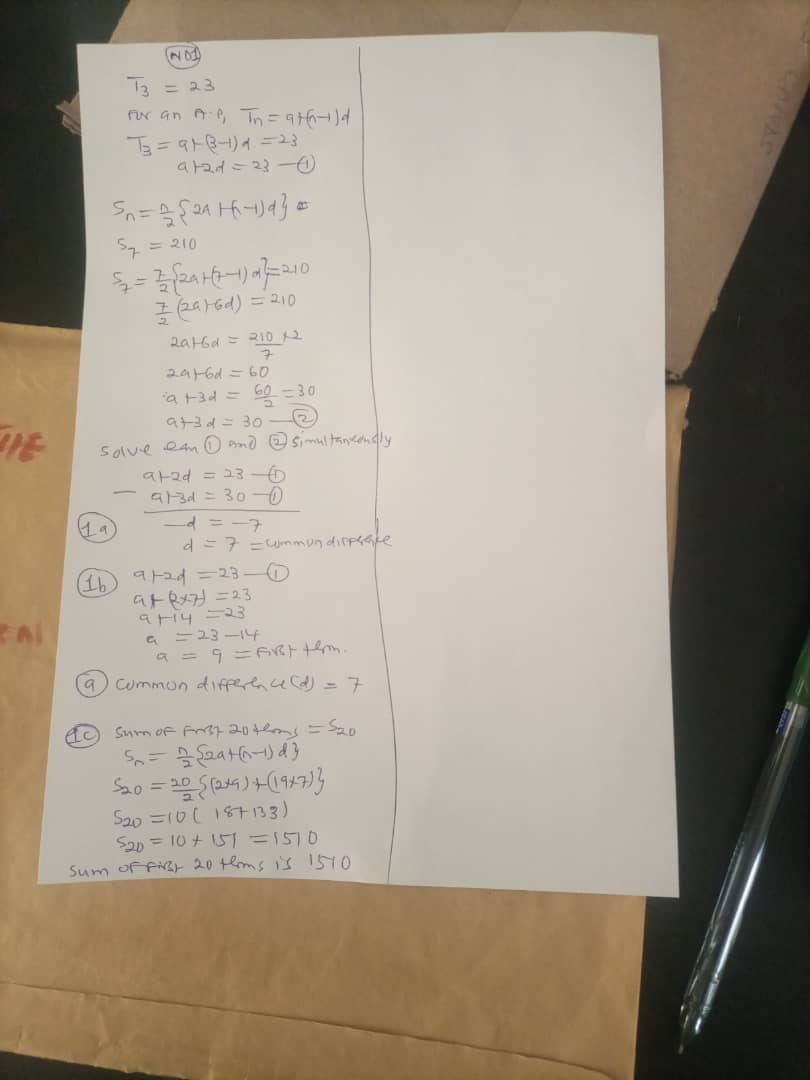 NO1
T3 = 23
For an A.P, Tn = a+(n-1)d
T3 = a+(3-1)d = 23
a+2d = 23 —①
Sn = n/2 {2a+(n-1)d}
S7 = 210
S7 = 7/2 {2a+(7-1)d} = 210
7/2 (2a+6d) = 210
2a+6d = 210×2/7
2a+6d = 60
a+3d = 60/2 = 30
a+3d = 30 —②
Solve eqn ① and ② simultaneously
a+2d = 23 —①
— a+3d = 30 —①
1a
-d = -7
d = 7 = common difference
1b
a+2d = 23 —①
a+(2×7) = 23
a+14 = 23
a = 23-14
a = 9 = First term.
a common difference (d) = 7
1c Sum of first 20 terms = S20
Sn = n/2 {2a+(n-1)d}
S20 = 20/2 {(2×9)+(19×7)}
S20 = 10( 18+133)
S20 = 10 + 151 = 1510
Sum of First 20 terms is 1510